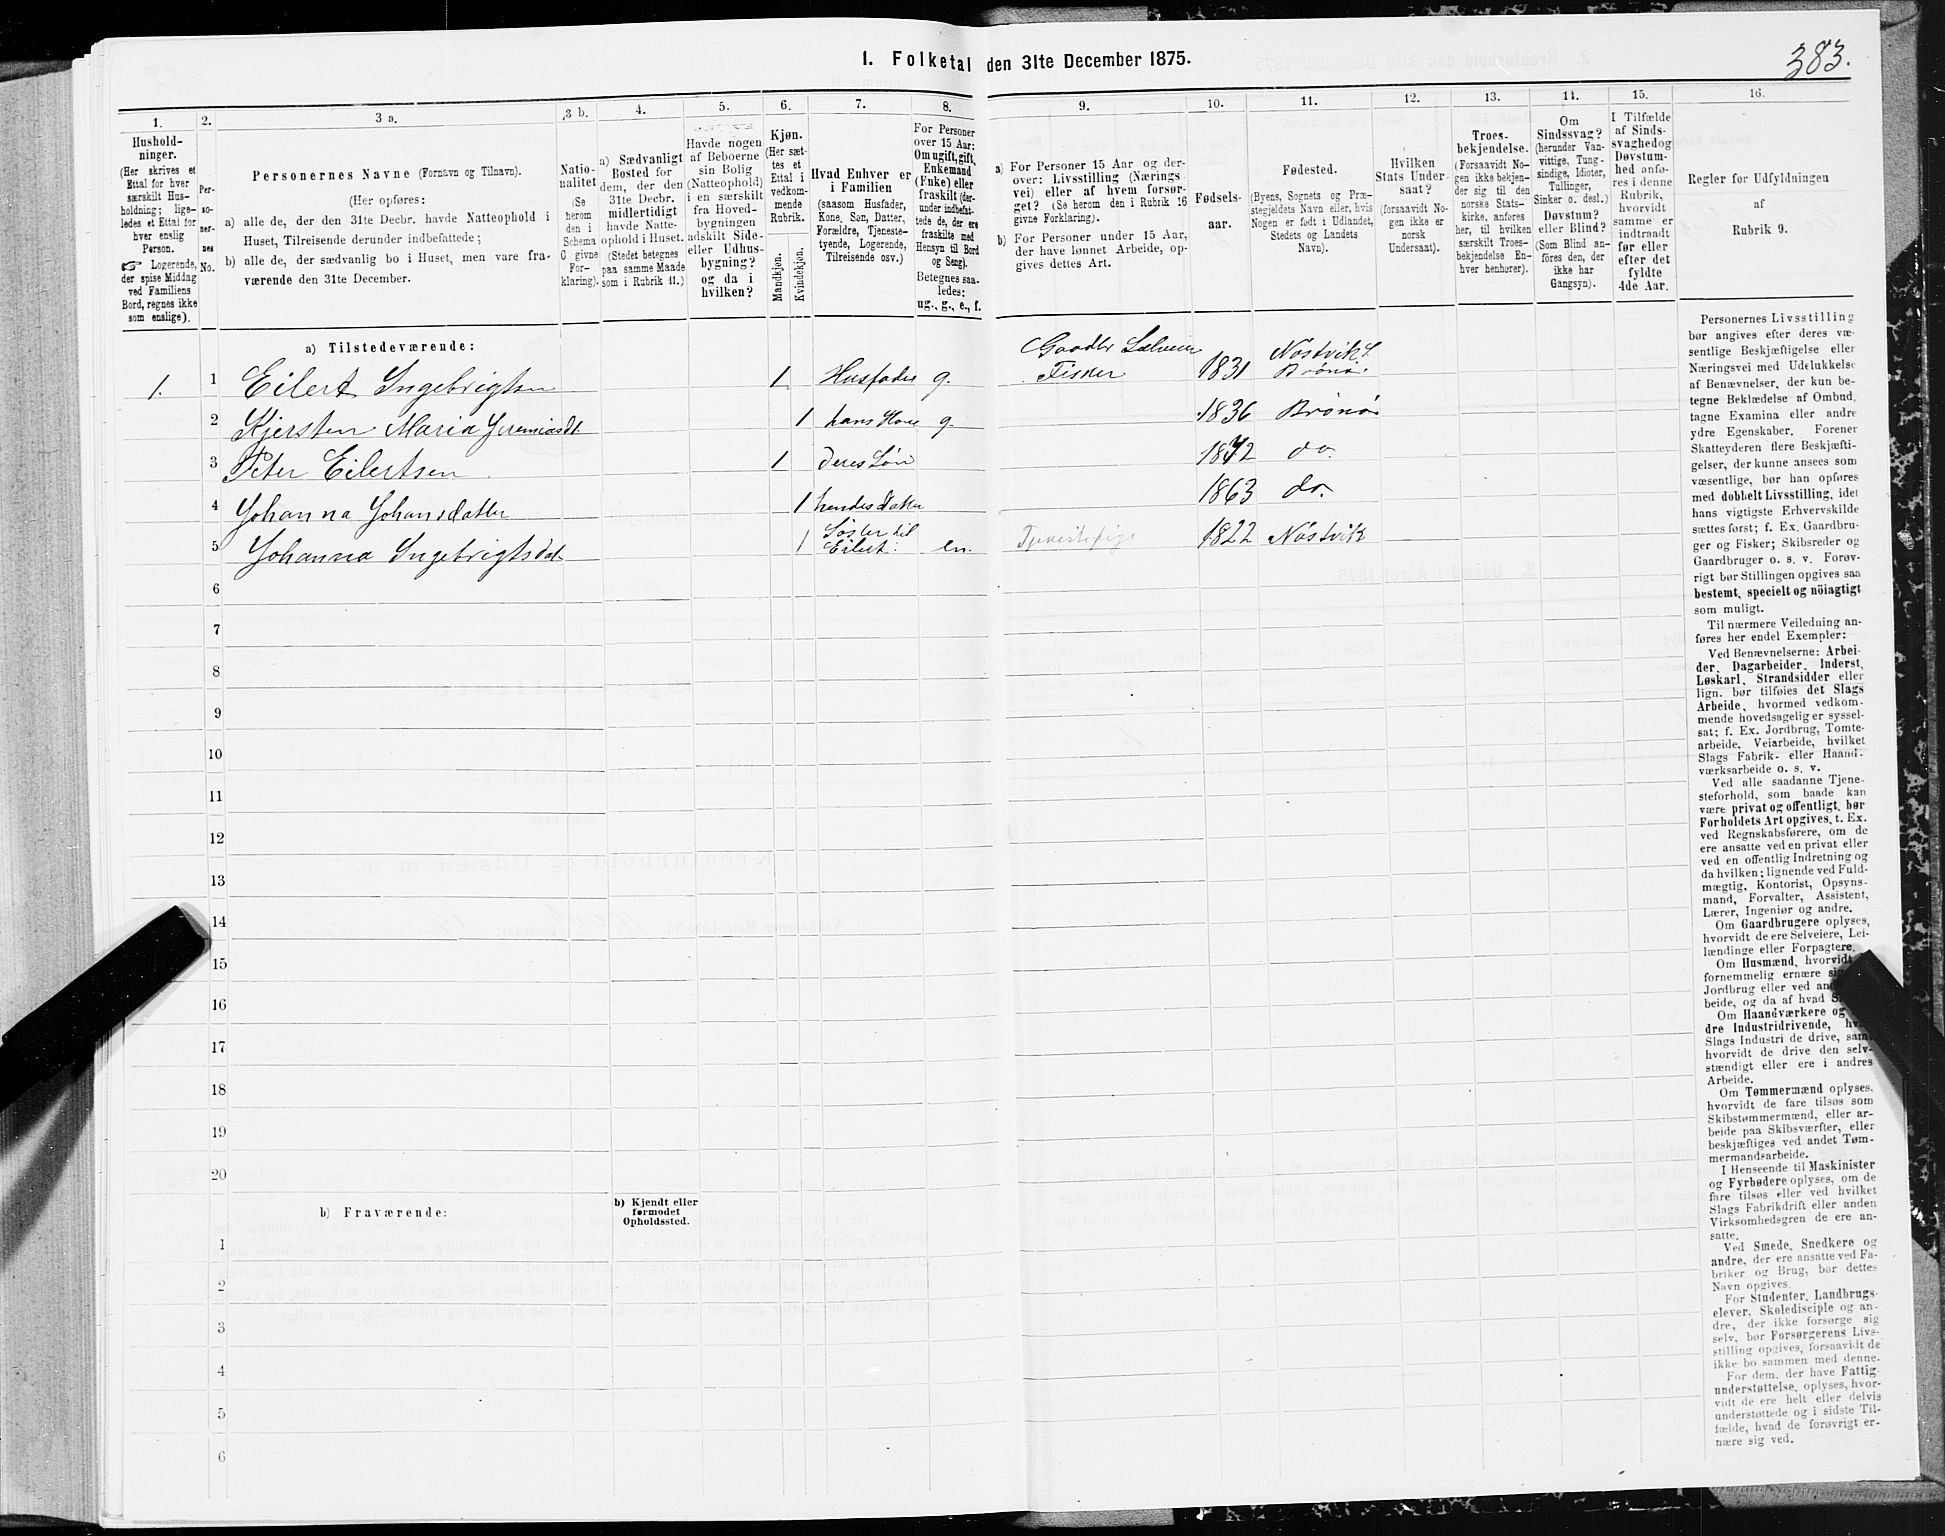 383.
1. Folketal den 31te December 1875.
1. 2. 3 a. 3 b. 4. 5. 6. 7. 8. 9. 10. 11. 12. 13. 14. 15. 16.
Hushold-
ninger.
(Her skrives et
Ettal for hver
særskilt Hus-
holdning; lige-
ledes et Ettal for
hver enslig
Person.
Logerende,
der spise Middag
ved Familiens
Bord, regnes ikke
som enslige).
Per-
so-
ner-
nes
No.
Personernes Navne (Fornavn og Tilnavn).
(Her opføres:
a) alle de, der den 31te Decbr. havde Natteophold i
Huset, Tilreisende derunder indbefattede;
b) alle de, der sædvanlig bo i Huset, men vare fra-
værende den 31te December.
Natio-
nalitet
(Se
herom
den i
Schema
C givne
For-
klaring).
a) Sædvanligt
Bosted for
dem, der den
31te Decbr.
midlertidigt
havde Natte-
ophold i Huset.
(Stedet betegnes
paa samme Maade
som i Rubrik 11.)
Havde nogen
af Beboerne
sin Bolig
(Natteophold)
i en særskilt
fra Hoved-
bygningen
adskilt Side-
eller Udhus-
bygning?
og da i
hvilken?
Kjøn.
(Her sæt-
tes et
Ettal i
vedkom-
mende
Rubrik.
Mandkjøn.
Kvindekjøn.
Hvad Enhver er
i Familien
(saasom Husfader,
Kone, Søn, Datter,
Forældre, Tjeneste-
tyende, Logerende,
Tilreisende osv.)
For Personer
over 15 Aar:
Om ugift, gift,
Enkemand
(Enke) eller
fraskilt (der-
under indbefat-
tede de, der ere
fraskilte med
Hensyn til Bord
og Seng).
Betegnes saa-
ledes:
ug., g., e., f.
a) For Personer 15 Aar og der-
over: Livsstilling (Nærings-
vei) eller af hvem forsør-
get? (Se herom den i Rubrik 16
givne Forklaring).
b) For Personer under 15 Aar,
der have lønnet Arbeide, op-
gives dettes Art.
Fødsels-
aar.
Fødested.
(Byens, Sognets og Præ-
stegjeldets Navn eller, hvis
Nogen er født i Udlandet,
Stedets og Landets
Navn).
Hvilken
Stats Under-
saat?
(forsaavidt No-
gen ikke er
norsk
Undersaat).
Troes-
bekjendelse.
(Forsaavidt No-
gen ikke bekjen-
der sig til den
norske Stats-
kirke, anføres
her, til hvilken
særskilt Troes-
bekjendelse En-
hver henhører).
Om
Sindssvag?
(herunder Van-
vittige, Tung-
sindige, Idioter,
Tullinger,
Sinker o. desl.)
Døvstum?
eller Blind?
(Som Blind an-
føres den, der
ikke har
Gangsyn).
I Tilfælde
af Sinds-
svaghedog
Døvstum-
hed anfø-
res i denne
Rubrik,
hvorvidt
samme er
indtraadt
før eller
efter det
fyldte
4de Aar.
Regler før Udfyldningen
af
Rubrik 9.
a) Tilstedeværende:
1. 1 Eilert Ingebrigtsen 1 Husfader g. Gaardbr Selveier Fisker 1831 Nøstvik S. Brønø.
2 Kjersten Maria Jeremiasdt. 1 hans Kone g. 1836 Brønø
3 Peter Eilertsen 1 deres Søn 1872 do.
4 Johanna Johansdatter 1 hendes Datter 1863 do.
5 Johanna Ingebrigtsdat 1 Søster til Eilert en. Tjenestepige 1822 Nøstvik
6
7
8
9
10
11
12
13
14
15
16
17
18
19
20
b) Fraværende:
b) Kjendt eller
formodet
Opholdssted.
1
2
3
4
5
6
Personernes Livsstilling
bør angives efter deres væ-
sentlige Beskjæftigelse eller
Næringsvei med Udelukkelse
af Benævnelser, der kun be-
tegne Beklædelse af Ombud,
tagne Examina eller andre
ydre Egenskaber. Forener
Skatteyderen flere Beskjæfti-
gelser, der kunne ansees som
væsentlige, bør han opføres
med dobbelt Livsstilling, idet
hans vigtigste Erhvervskilde
sættes først; f. Ex. Gaardbru-
ger og Fisker; Skibsreder og
Gaardbruger o. s. v. Forøv-
rigt bør Stillingen opgives saa
bestemt, specielt og nöiagtigt
som muligt.
Til nærmere Veiledning an-
føres her endel Exempler:
Ved Benævnelserne: Arbei-
der, Dagarbeider, Inderst,
Løskarl, Strandsidder eller
lign. bør tilføies det Slags
Arbeide, hvormed vedkom-
mende hovedsagelig er syssel-
sat; f. Ex. Jordbrug, Tomte-
arbeide, Veiarbeide, hvilket
Slags Fabrik- eller Haand-
værksarbeide o. s. v.
Ved alle saadanne Tjene-
steforhold, som baade kan
være privat og offentligt, bør
Forholdets Art opgives, t. Ex.
ved Regnskabsførere, om de
ere ansatte ved en privat eller
ved en offentlig Indretning og
da hvilken; lignende ved Fuld-
mægtig, Kontorist, Opsyns-
mand, Forvalter, Assistent,
Lærer, Ingeniør og andre.
Om Gaardbrugere oplyses,
hvorvidt de ere Selveiere, Lei-
lændinge eller Forpagtere.
Om Husmænd, hvorvidt
fornemmelig ernære
Jordbrug eller ved
beide, og da af hvad
Om Haandværkere og
dre Industridrivende,
Slags Industri de drive, samt
hvorvidt de drive den selv-
stændigt eller ere i andres
Arbeide.
Om Tømmermænd oplyses,
hvorvidt de fare tilsøs som
Skibstømmermænd, eller ar-
beide paa Skibsværfter, eller
beskjæftiges ved andet Tøm-
mermandsarbeide.
I Henseende til Maskinister
og Fyrbødere oplyses, om de
fare tilsøs eller ved hvilket
Slags Fabrikdrift eller anden
Virksomhedsgren de ere an-
satte.
Ved Smede, Snedkere og
andre, der ere ansatte ved Fa-
briker og Brug, bør dettes
Navn opgives.
For Studenter, Landbrugs-
elever, Skoledisciple og an-
dre, der ikke forsørge sig
selv, bør Forsørgerens Livs-
stilling opgives, forsaavidt de
ikke bo sammen med denne.
For dem, der have Fattig-
understøttelse, oplyses, hvor-
vidt de ere helt eller delvis
understøttede og i sidste Til-
fælde, hvad de forøvrigt er-
nære sig ved.